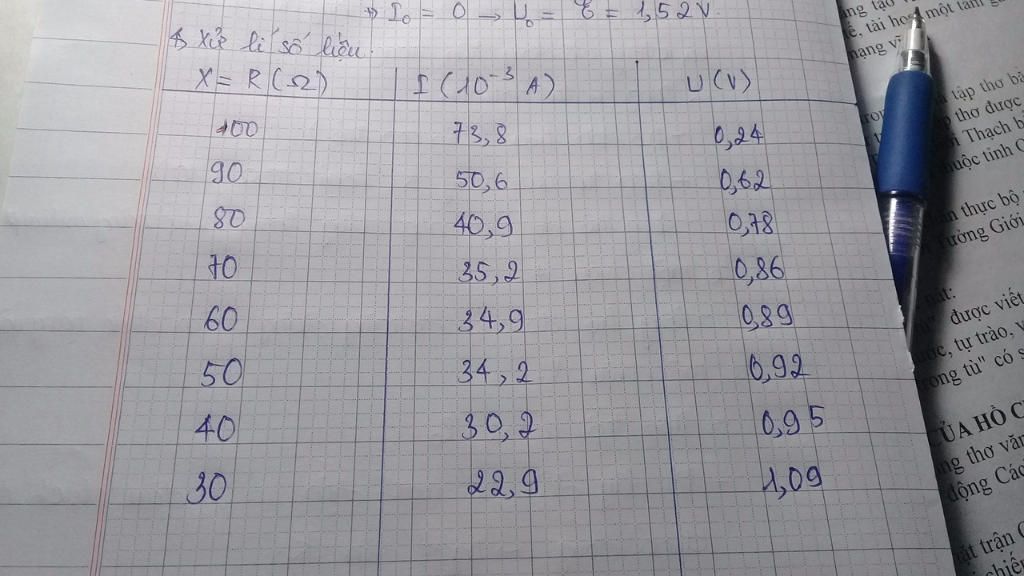 => I₀ = 0 → U₀ = ℰ = 1,52V.
Xử lí số liệu.
X = R (Ω) I (10⁻³ A) U (V)
100 73,8 0,24
90 50,6 0,62
80 40,9 0,78
70 35,2 0,86
60 34,9 0,89
50 34,2 0,92
40 30,2 0,95
30 22,9 1,09
ng tạo
tài học
một tấm
tập thơ
thơ được
Thạch
thuộc tỉnh
thực bộ
Tưởng Giới
được viết
tự trào, v
trong tù" có s
CỦA HỒ C
ng thơ văn
động Các
ặt trận
chiế